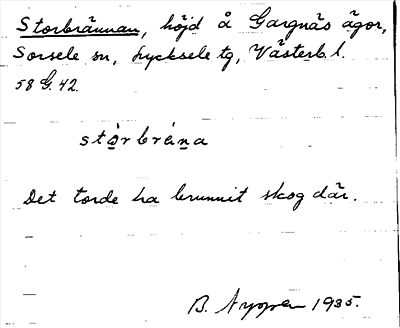 Storbrännan, höjd å Gargnäs ägor,
Sorsele sn, Lycksele tg, Västerb. l.
58 G. 42.
stòrbrána
Det torde ha brunnit skog där.
B. 1935.